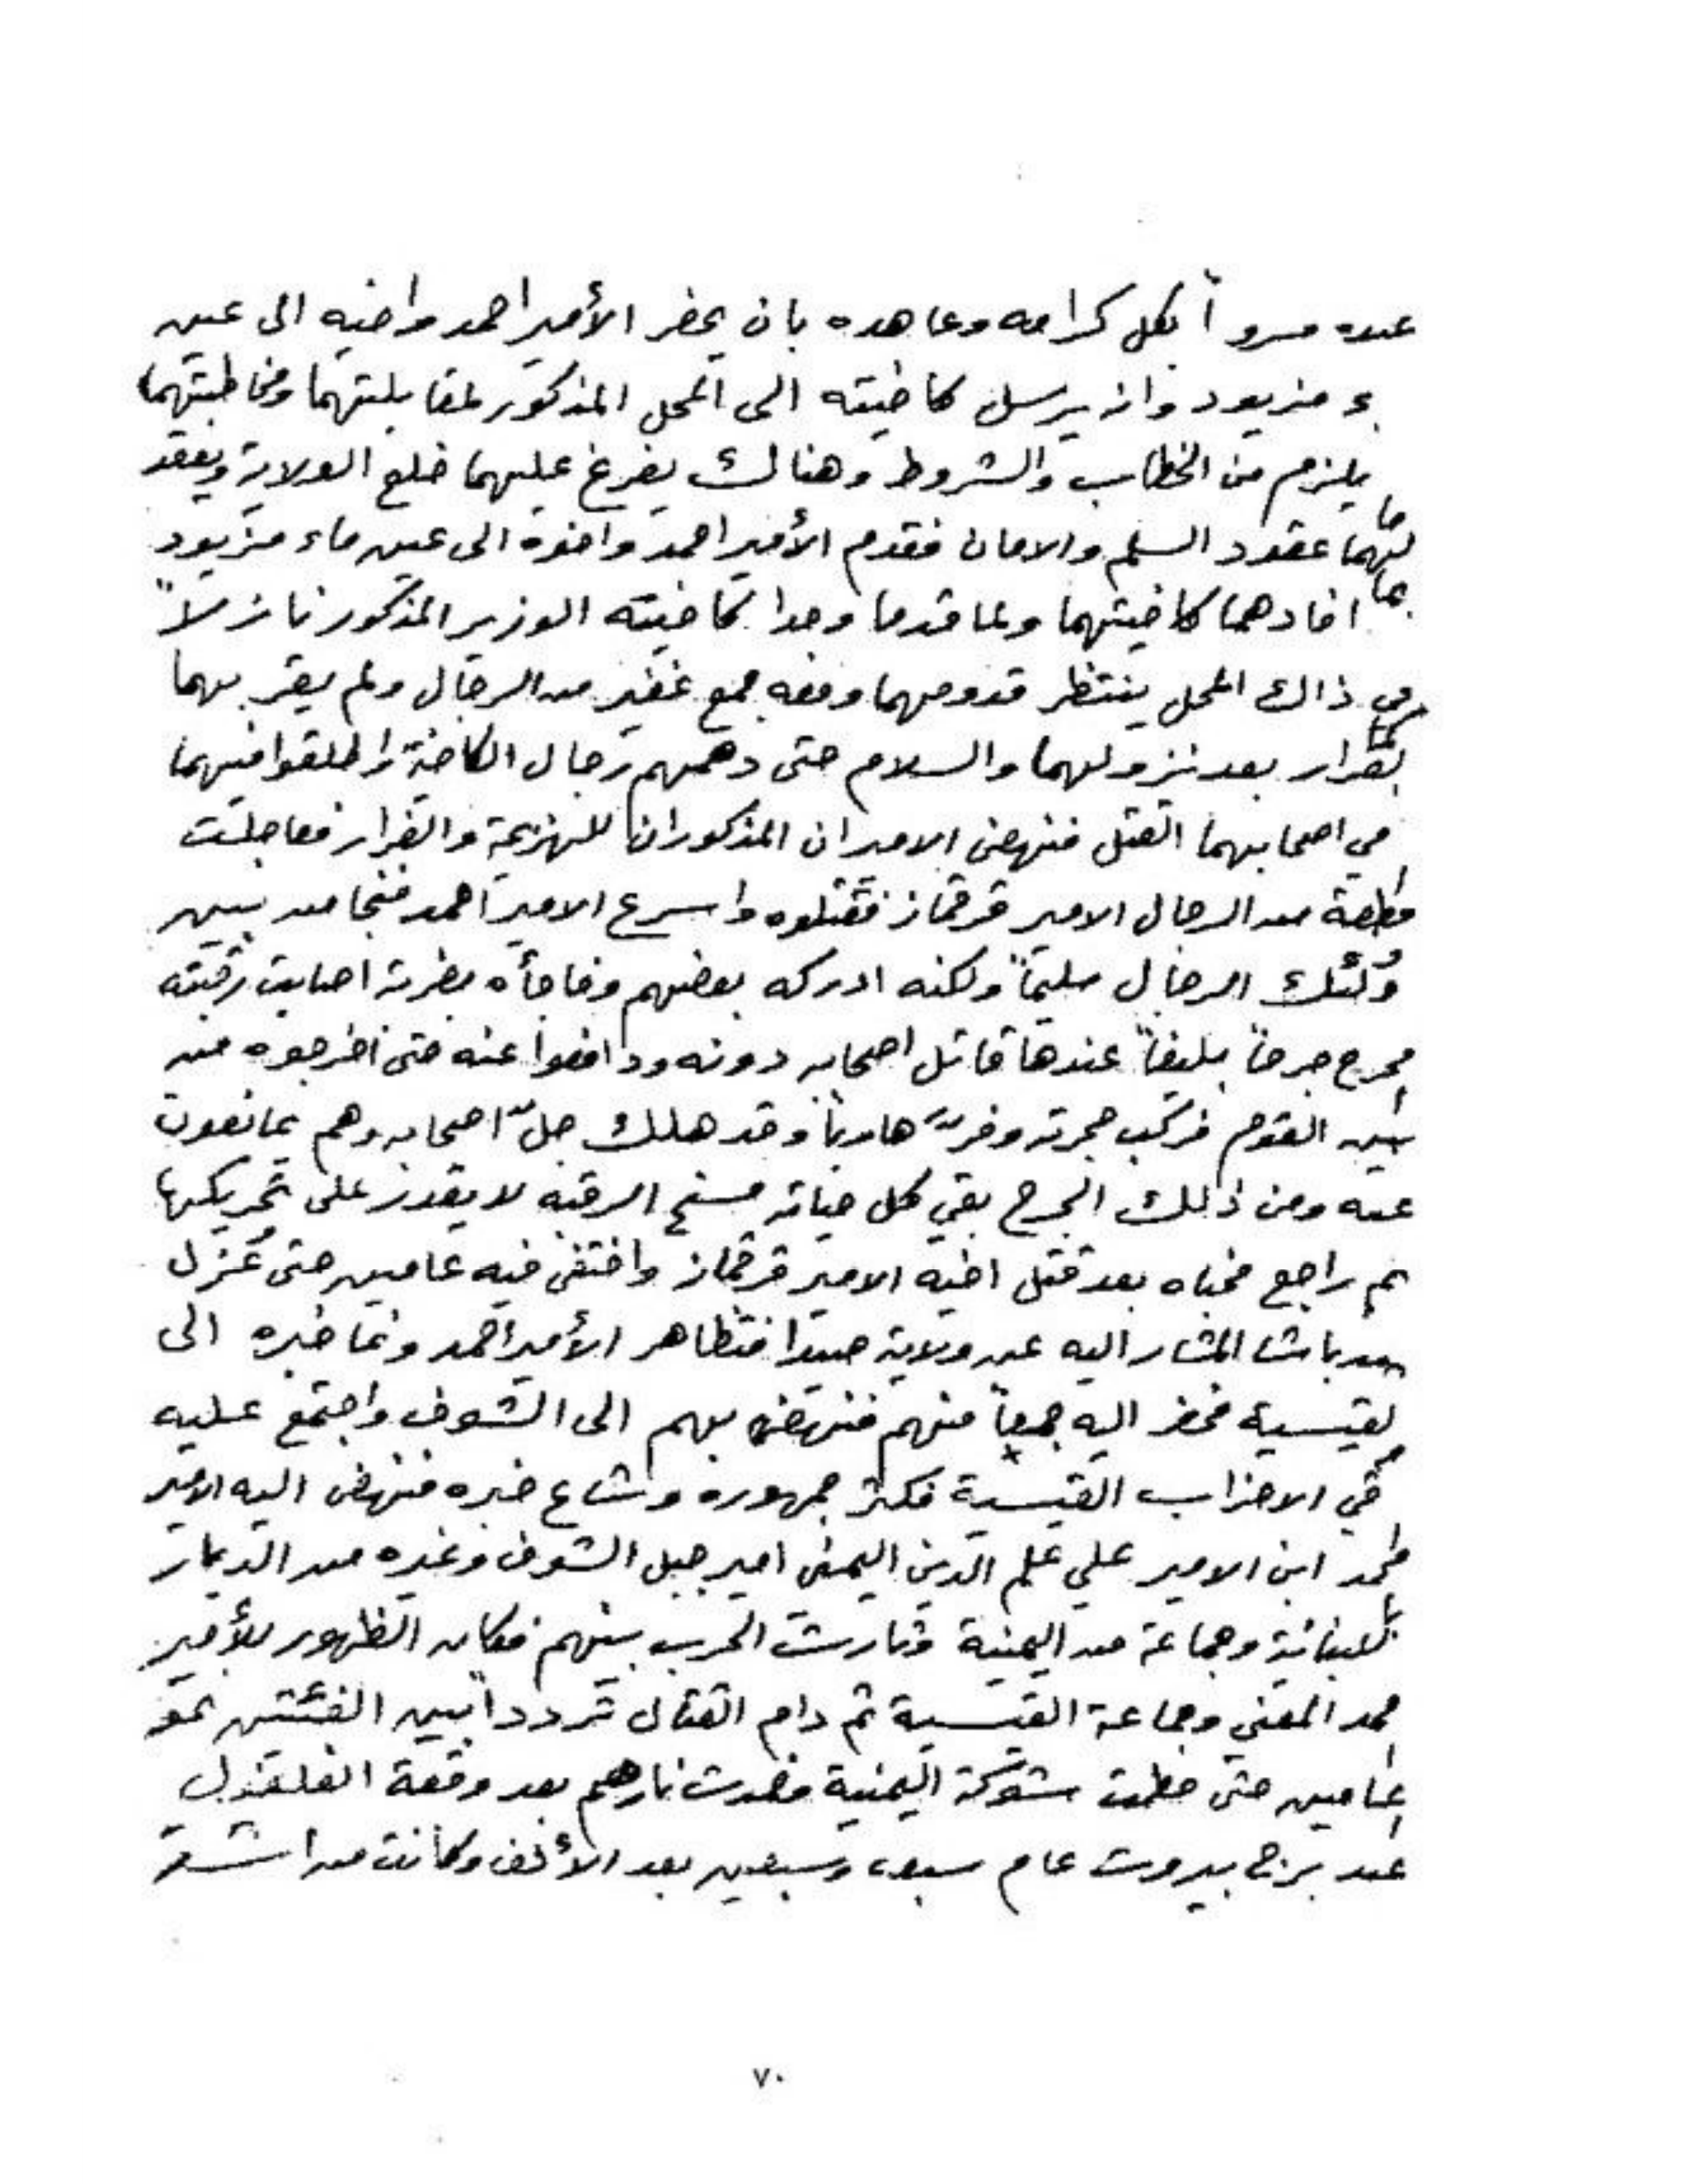 عنده مسروراً بكل كرامه وعاهده بان يحضر الأمير احمد واخيه الى عين
ء مزبود وانه يرسل كاخيته الى المحل المذكور لمقابلتهما ومخاطبتهما
ما يلزم من الخطاب والشروط وهنالك يفرغ عليهما خلع الولاية ويعقد
لهما عقود السلم والامان فقدم الأمير احمد واخوه الى عين ماء مزبود
بما افادهما كاخيتهما ولما قدما وجدا كاخيته الوزير المذكور نازلاً
في ذاك المحل ينتظر قدومهما ومعه جمع غفير من الرجال ولم يقر بهما
القرار بعد نزولهما والسلام حتى دهمهم رجال الكاخية واطلقوا فيهما
في اصحابهما القتل فنهض الاميران المذكوران للهزيمة والفرار فعاجلت
قطعة من الرجال الامير قرقماز فقتلوه واسرع الامير احمد فنجا من بين
ولئك الرجال سليماً ولكنه ادركه بعضهم وفاجأه بضربة اصابت رقبته
فجرح جرحاً بليغاً عندها قاتل اصحابه دونه ودافعوا عنه حتى اخرجوه من
بين القوم فركب حجرته وفرّ هارباً وقد هلك جلّ اصحابه وهم يمانعون
عنه ومن ذلك الجرح بقي كل حياته مسنح الرقبه لا يقدر على تحريكها
ثم راجع مخباه بعد قتل اخيه الامير قرقماز واختفى فيه عامين حتى عُزل
باشا المشار اليه عن ولاية صيدا فتظاهر الأمير احمد ونما خبره الى
لقيسية فحضر اليه جميعاً منهم فنهض بهم الى الشوف واجتمع عليه
قي الاحزاب القيسية فكثر جمهوره وشاع خبره فنهض اليه الامير
محمد ابن الامير علي علم الدين اليمني امير جبل الشوف وغيره من الديار
اللبنانية وجماعة من اليمنية وثارت الحرب بينهم فكان الظهور للأمير
حمد المعني وجماعة القيسية ثم دام القتال تردداً بين الفئتين نحو
عامين حتى حطمت شوكة اليمنية وخمدت نارهم بعد وقعة الغلغول
عند برج بيروت عام سبع وسبعين بعد الألف وكانت من اشد
٧٠